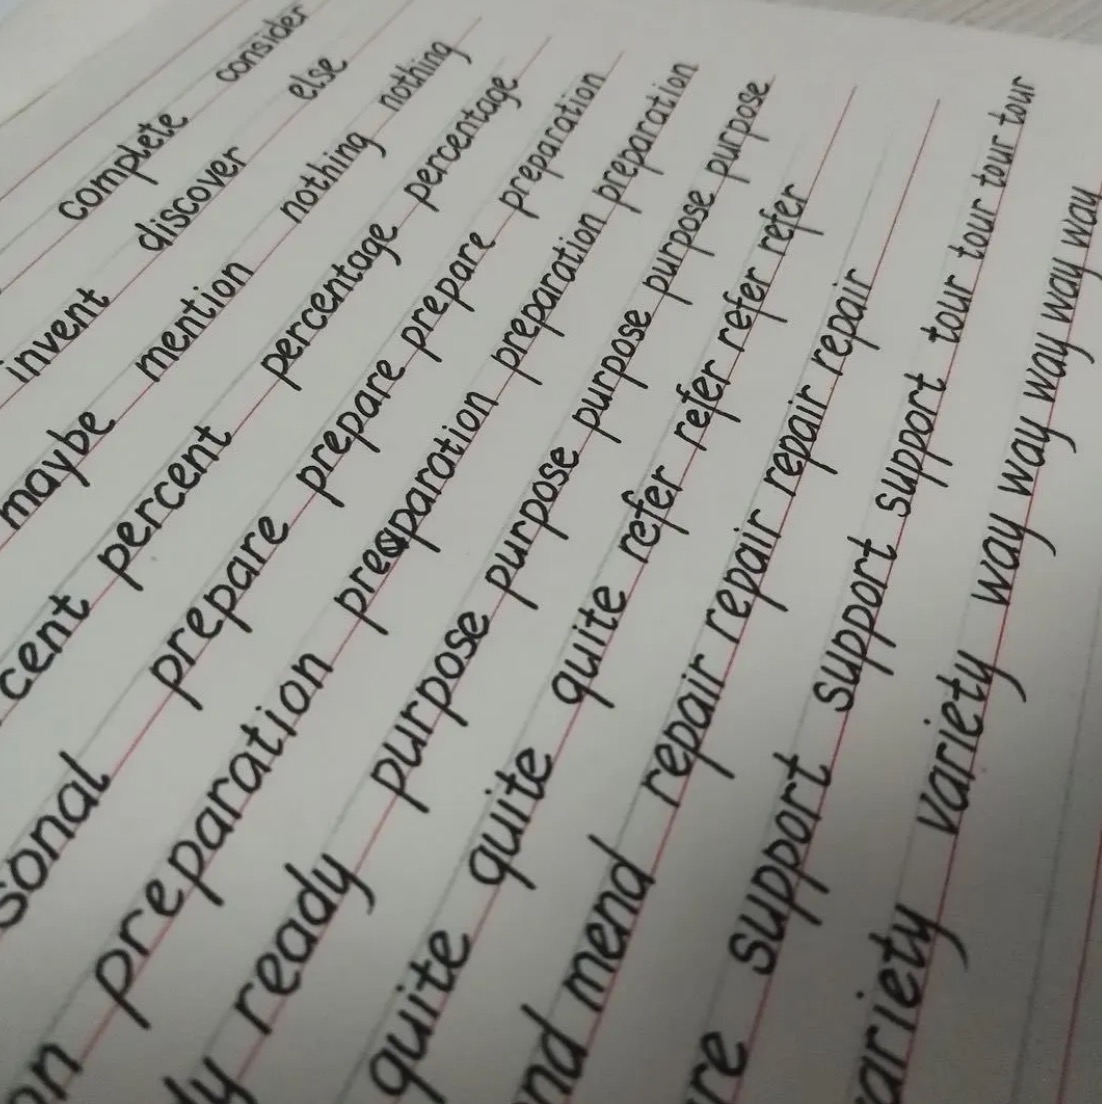 complete consider
invent discover else
maybe mention nothing nothing
cent percent percentage percentage
sonal prepare prepare prepare preparation
on preparation preaparation preparation preparation
dy ready purpose purpose purpose purpose purpose
quite quite quite refer refer refer refer
nd mend repair repair repair repair
re support support support tour tour tour tour
ariety variety way way way way way